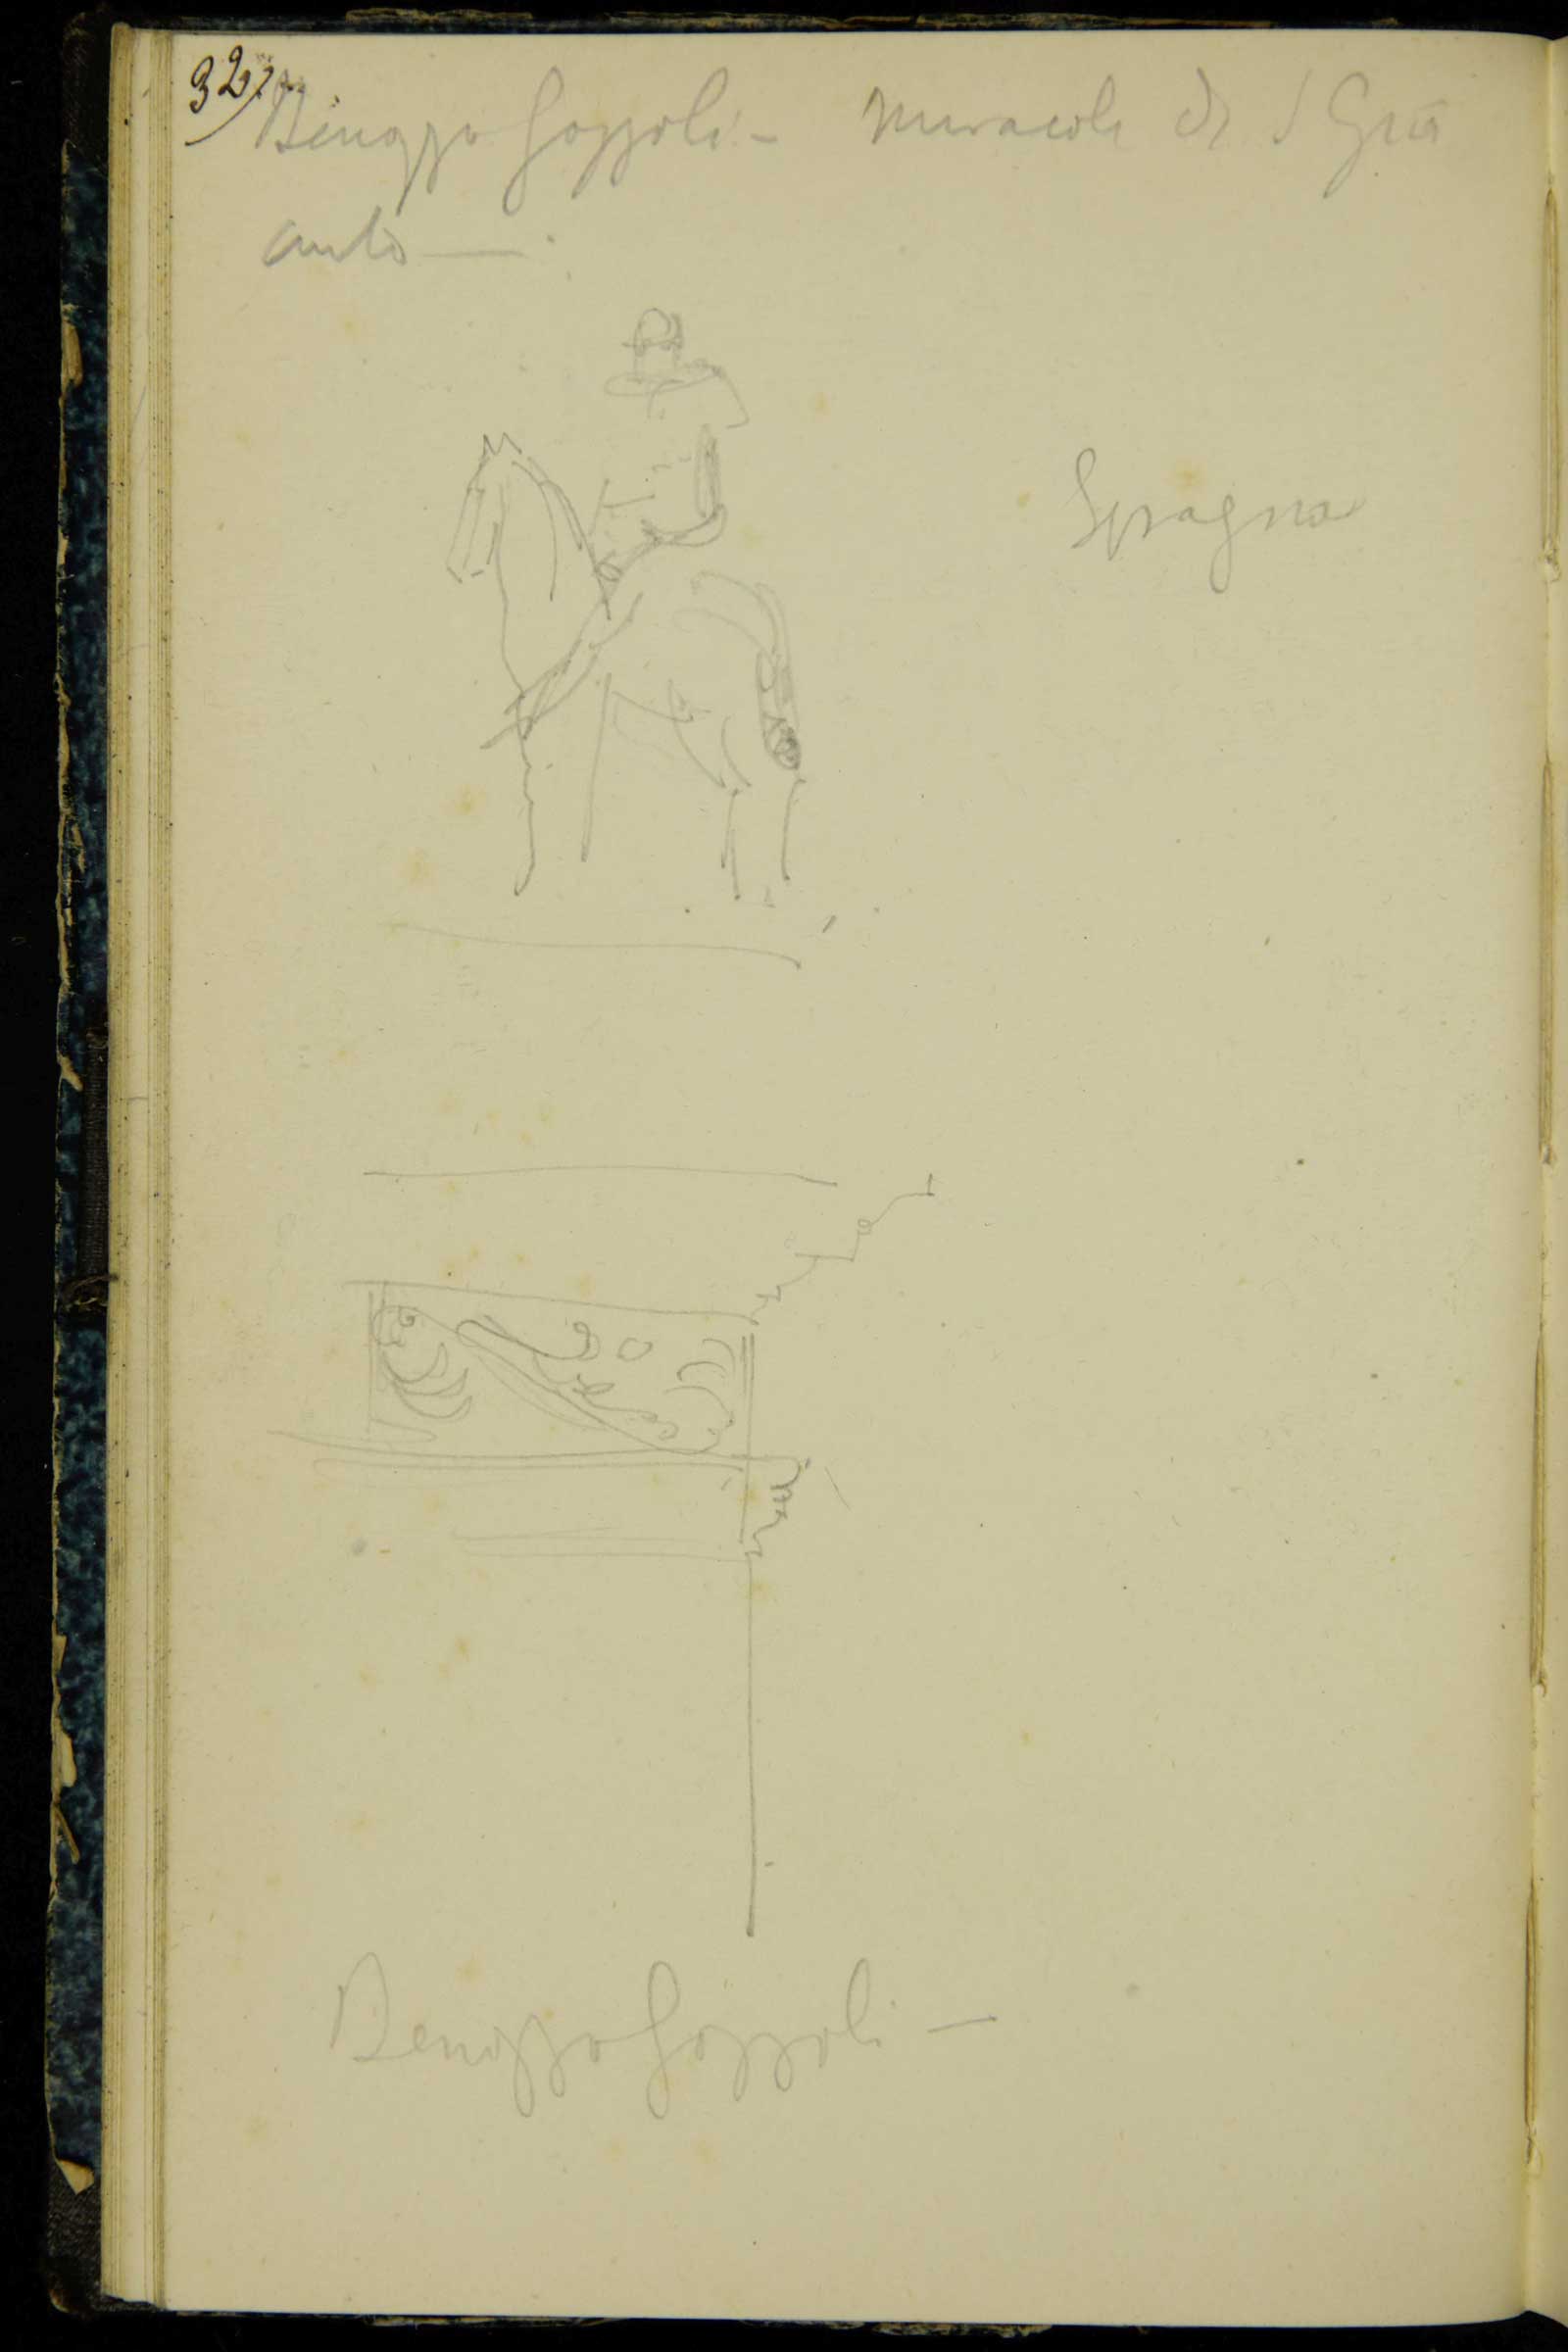 32)
Benozzo Gozzoli - Miracoli di S
Spagna
Benozzo Gozzoli —